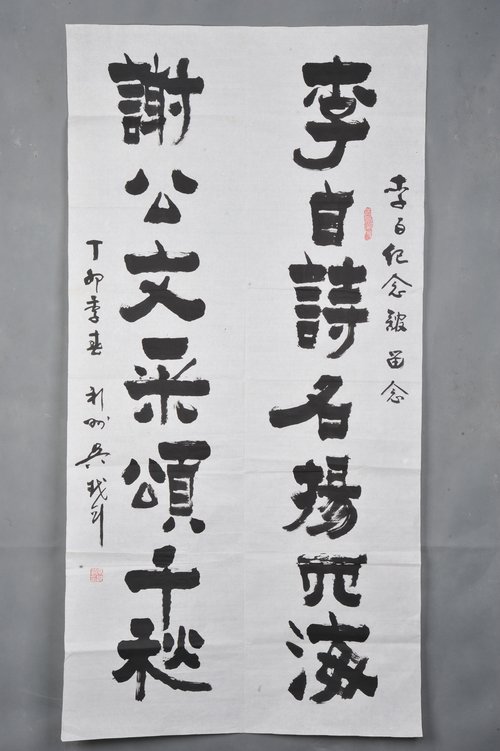 李白纪念館留念
李白詩名揚四海
謝公文采頌千秋
丁卯季春 利州吴